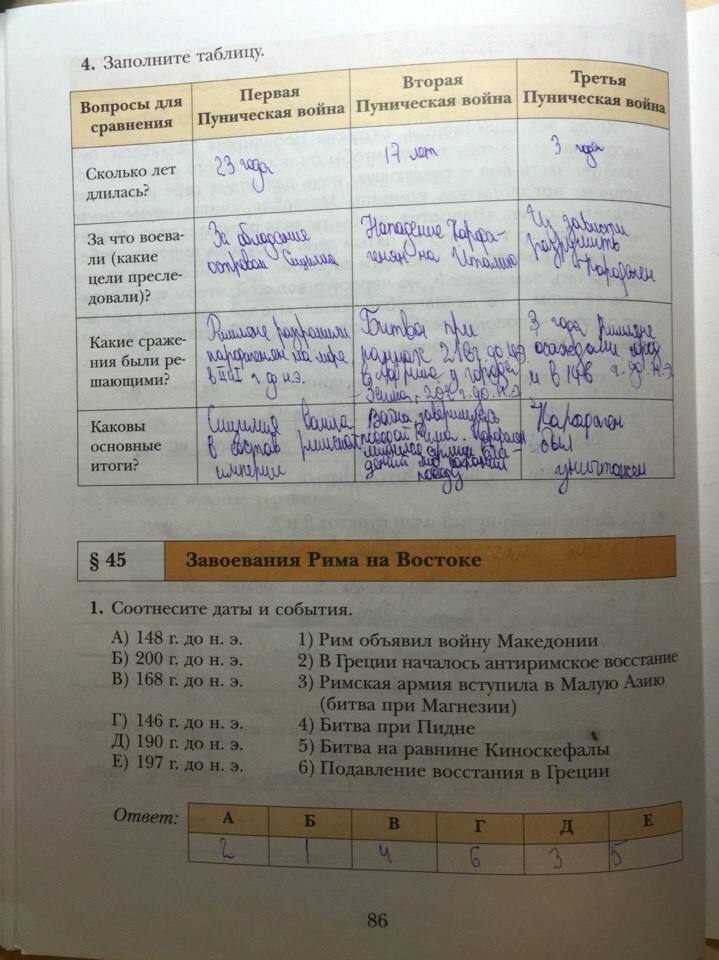 4. Заполните таблицу.
Вопросы для
сравнения
Первая
Пуническая война
Вторая
Пуническая война
Третья
Пуническая война
Сколько лет
длилась?
23 года
17 лет
3 года
За что воева-
ли (какие
цели пресле-
довали)?
За обладение
островом Сицилия
Нападение Карфа-
генян на Италию
Из зависти
разрушить
Карфаген
Какие сраже-
ния были ре-
шающими?
Римляне разгромили
карфагенян на море
в 241 г. до н.э.
Битва при
Каннах 216 г. до н.э.
Битва у города
Замма, 202 г. до н.э
3 года Римляне
осаждали город
и в 146 г. до н.э
Каковы
основные
итоги?
Сицилия вошла
в состав римской
империи
Война завершилась
победой Рима. Карфаген
лишился
Карфаген
был
уничтожен
§ 45
Завоевания Рима на Востоке
1. Соотнесите даты и события.
А) 148 г. до н. э.
1) Рим объявил войну Македонии
Б) 200 г. до н. э.
2) В Греции началось антиримское восстание
В) 168 г. до н. э.
3) Римская армия вступила в Малую Азию
(битва при Магнезии)
Г) 146 г. до н. э.
4) Битва при Пидне
Д) 190 г. до н. э.
5) Битва на равнине Киноскефалы
Е) 197 г. до н. э.
6) Подавление восстания в Греции
Ответ:
А Б В Г Д Е
2 1 4 6 3 5
86